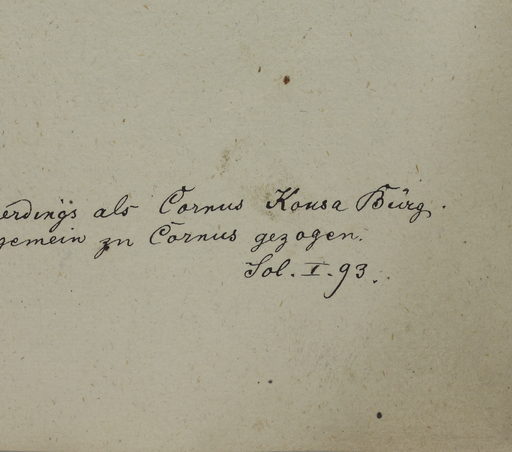 erdings als Cornus Kousa Bürg.
gemein zu Cornus gezogen.
Sol. I. 93.